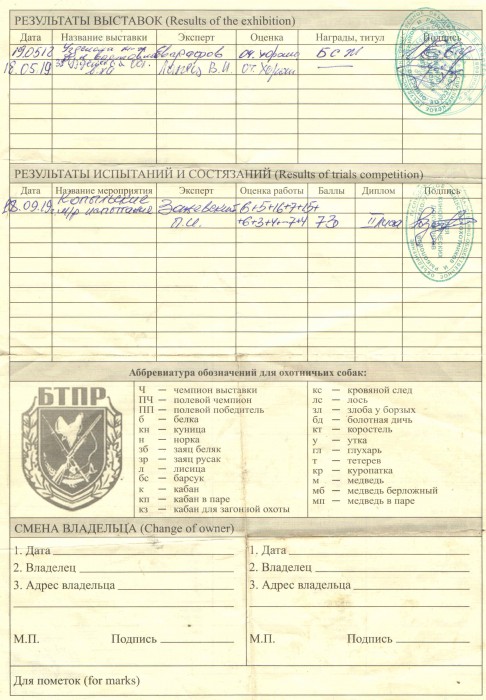 РЕЗУЛЬТАТЫ ВЫСТАВОК (Results of the exhibition)
Дата Название выставки Эксперт Оценка Награды, титул Подпись
19.05.18 оч. хорошо
18.05.19 В.И. оч. хорош
РЕЗУЛЬТАТЫ ИСПЫТАНИЙ И СОСТЯЗАНИЙ (Results of trials competition)
Дата Название мероприятия Эксперт Оценка работы Баллы Диплом Подпись
.09.19 Копыльские
м/р испытание П.И. +6+3+4+-7+4 73
Аббревиатура обозначений для охотничьих собак:
БТПР
Ч — чемпион выставки
ПЧ — полевой чемпион
ПП — полевой победитель
б — белка
кн — куница
н — норка
зб — заяц беляк
зр — заяц русак
л — лисица
бс — барсук
к — кабан
кп — кабан в паре
кз — кабан для загонной охоты
кс — кровяной след
лс — лось
зл — злоба у борзых
бд — болотная дичь
кт — коростель
у — утка
гл — глухарь
т — тетерев
кр — куропатка
м — медведь
мб — медведь берложный
мп — медведь в паре
СМЕНА ВЛАДЕЛЬЦА (Change of owner)
1. Дата
2. Владелец
3. Адрес владельца
М.П. Подпись
1. Дата
2. Владелец
3. Адрес владельца
М.П. Подпись
Для пометок (for marks)